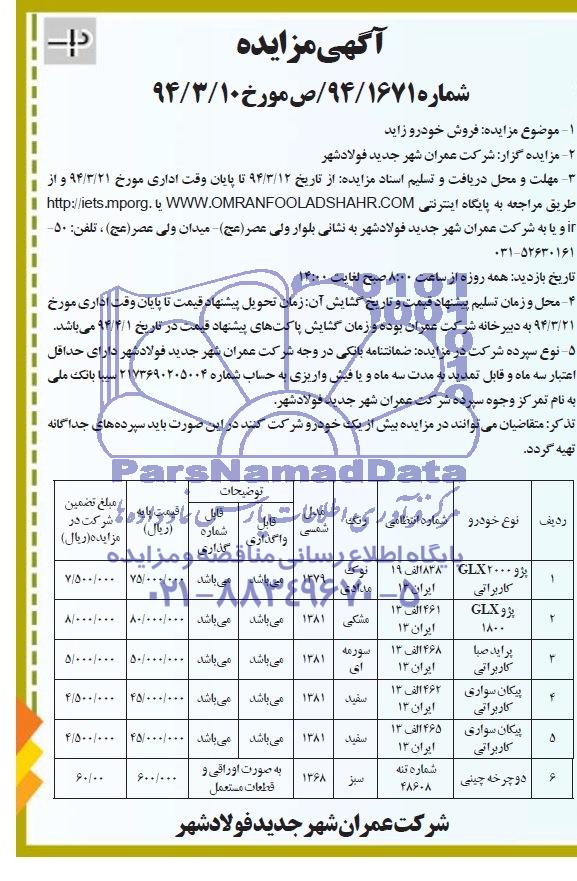 آگهی مزایده
شماره ۹۴/۱۶۷۱/ص مورخ ۹۴/۳/۱۰
۱- موضوع مزایده: فروش خودرو زاید
۲- مزایده گزار: شرکت عمران شهر جدید فولادشهر
۳- مهلت و محل دریافت و تسلیم اسناد مزایده: از تاریخ ۹۴/۳/۱۲ تا پایان وقت اداری مورخ ۹۴/۳/۲۱ و از
طریق مراجعه به پایگاه اینترنتی WWW.OMRANFOOLADSHAHR.COM یا http://iets.mporg.
ir و یا به شرکت عمران شهر جدید فولادشهر به نشانی بلوار ولی عصر(عج)- میدان ولی عصر(عج) ، تلفن: ۵۰-
۰۳۱-۵۲۶۳۰۱۶۱
تاریخ بازدید: همه روزه از ساعت ۸:۰۰ صبح لغایت ۱۴:۰۰
۴- محل و زمان تسلیم پیشنهاد قیمت و تاریخ گشایش آن: زمان تحویل پیشنهاد قیمت تا پایان وقت اداری مورخ
۹۴/۳/۲۱ به دبیرخانه شرکت عمران بوده و زمان گشایش پاکت‌های پیشنهاد قیمت در تاریخ ۹۴/۴/۱ می‌باشد.
۵- نوع سپرده شرکت در مزایده: ضمانتنامه بانکی در وجه شرکت عمران شهر جدید فولادشهر دارای حداقل
اعتبار سه ماه و قابل تمدید به مدت سه ماه و یا فیش واریزی به حساب شماره ۲۱۷۳۶۹۰۲۰۵۰۰۴ سیبا بانک ملی
به نام تمرکز وجوه سپرده شرکت عمران شهر جدید فولادشهر.
تذکر: متقاضیان می‌توانند در مزایده بیش از یک خودرو شرکت کنند در این صورت باید سپرده‌های جداگانه
تهیه گردد.
ParsNamadData
مرکز فرآوری اطلاعات پارس نماد داده ها
پایگاه اطلاع رسانی مناقصه و مزایده
۰۲۱-۸۸۳۴۹۶۷۰-۵
ردیف نوع خودرو شماره انتظامی رنگ مدل شمسی توضیحات قابل واگذاری قابل شماره گذاری قیمت پایه (ریال) مبلغ تضمین شرکت در مزایده (ریال)
۱ پژو GLX۲۰۰۰ کاربراتی ۸۳۸الف ۱۹ ایران ۱۳ نوک مدادی ۱۳۷۹ می‌باشد می‌باشد ۷۵/۰۰۰/۰۰۰ ۷/۵۰۰/۰۰۰
۲ پژو GLX ۱۸۰۰ ۴۶۱الف ۱۳ ایران ۱۳ مشکی ۱۳۸۱ می‌باشد می‌باشد ۸۰/۰۰۰/۰۰۰ ۸/۰۰۰/۰۰۰
۳ پراید صبا کاربراتی ۴۶۸الف ۱۳ ایران ۱۳ سورمه ای ۱۳۸۱ می‌باشد می‌باشد ۵۰/۰۰۰/۰۰۰ ۵/۰۰۰/۰۰۰
۴ پیکان سواری کاربراتی ۴۶۲الف ۱۳ ایران ۱۳ سفید ۱۳۸۱ می‌باشد می‌باشد ۴۵/۰۰۰/۰۰۰ ۴/۵۰۰/۰۰۰
۵ پیکان سواری کاربراتی ۴۶۵الف ۱۳ ایران ۱۳ سفید ۱۳۸۱ می‌باشد می‌باشد ۴۵/۰۰۰/۰۰۰ ۴/۵۰۰/۰۰۰
۶ دوچرخه چینی شماره تنه ۴۸۶۰۸ سبز ۱۳۶۸ به صورت اوراقی و قطعات مستعمل ۶۰۰/۰۰۰ ۶۰/۰۰
شرکت عمران شهر جدید فولادشهر